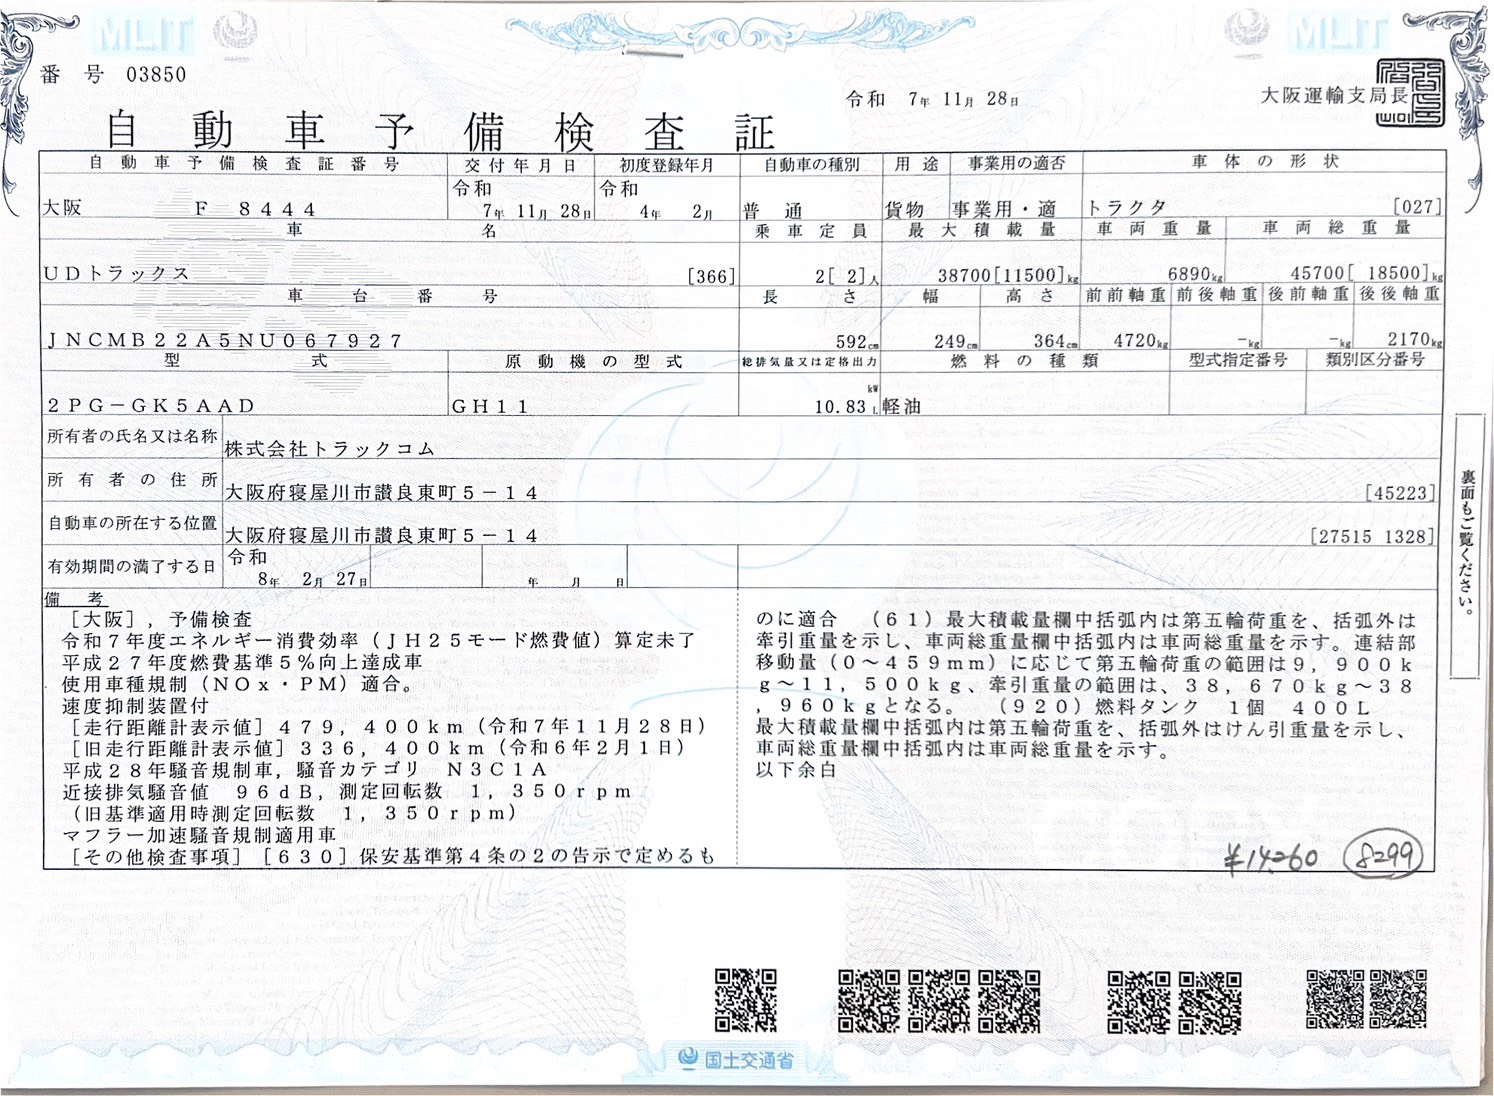 MLIT
MLIT
番 号 03850
令和 7年 11月 28日
大阪運輸支局長
自動車予備検査証
自動車予備検査証番号 交付年月日 初度登録年月 自動車の種別 用途 事業用の適否 車体の形状
令和 令和
大阪 F 8444 7年 11月 28日 4年 2月 普通 貨物 事業用・適 トラクタ [027]
車名 乗車定員 最大積載量 車両重量 車両総重量
UDトラックス [366] 2[ 2]人 38700[11500]kg 6890kg 45700[ 18500]kg
車台番号 長さ 幅 高さ 前前軸重 前後軸重 後前軸重 後後軸重
JNCMB22A5NU067927 592cm 249cm 364cm 4720kg -kg -kg 2170kg
型式 原動機の型式 総排気量又は定格出力 燃料の種類 型式指定番号 類別区分番号
kW
2PG-GK5AAD GH11 10.83 L 軽油
所有者の氏名又は名称 株式会社トラックコム
所有者の住所 大阪府寝屋川市讃良東町5-14 [45223]
自動車の所在する位置 大阪府寝屋川市讃良東町5-14 [27515 1328]
有効期間の満了する日 令和 8年 2月 27日 年 月 日
備考
[大阪],予備検査
令和7年度エネルギー消費効率(JH25モード燃費値)算定未了
平成27年度燃費基準5%向上達成車
使用車種規制(NOx・PM)適合。
速度抑制装置付
[走行距離計表示値]479,400km(令和7年11月28日)
[旧走行距離計表示値]336,400km(令和6年2月1日)
平成28年騒音規制車,騒音カテゴリ N3C1A
近接排気騒音値 96dB,測定回転数 1,350rpm
(旧基準適用時測定回転数 1,350rpm)
マフラー加速騒音規制適用車
[その他検査事項][630]保安基準第4条の2の告示で定めるも
のに適合 (61)最大積載量欄中括弧内は第五輪荷重を、括弧外は
牽引重量を示し、車両総重量欄中括弧内は車両総重量を示す。連結部
移動量(0~459mm)に応じて第五輪荷重の範囲は9,900k
g~11,500kg、牽引重量の範囲は、38,670kg~38
,960kgとなる。 (920)燃料タンク 1個 400L
最大積載量欄中括弧内は第五輪荷重を、括弧外はけん引重量を示し、
車両総重量欄中括弧内は車両総重量を示す。
以下余白
¥14,260 8299
裏面もご覧ください。
国土交通省